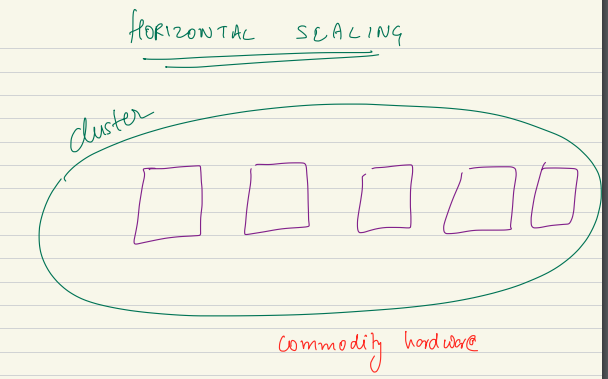 HORIZONTAL SCALING
cluster
commodity hardware